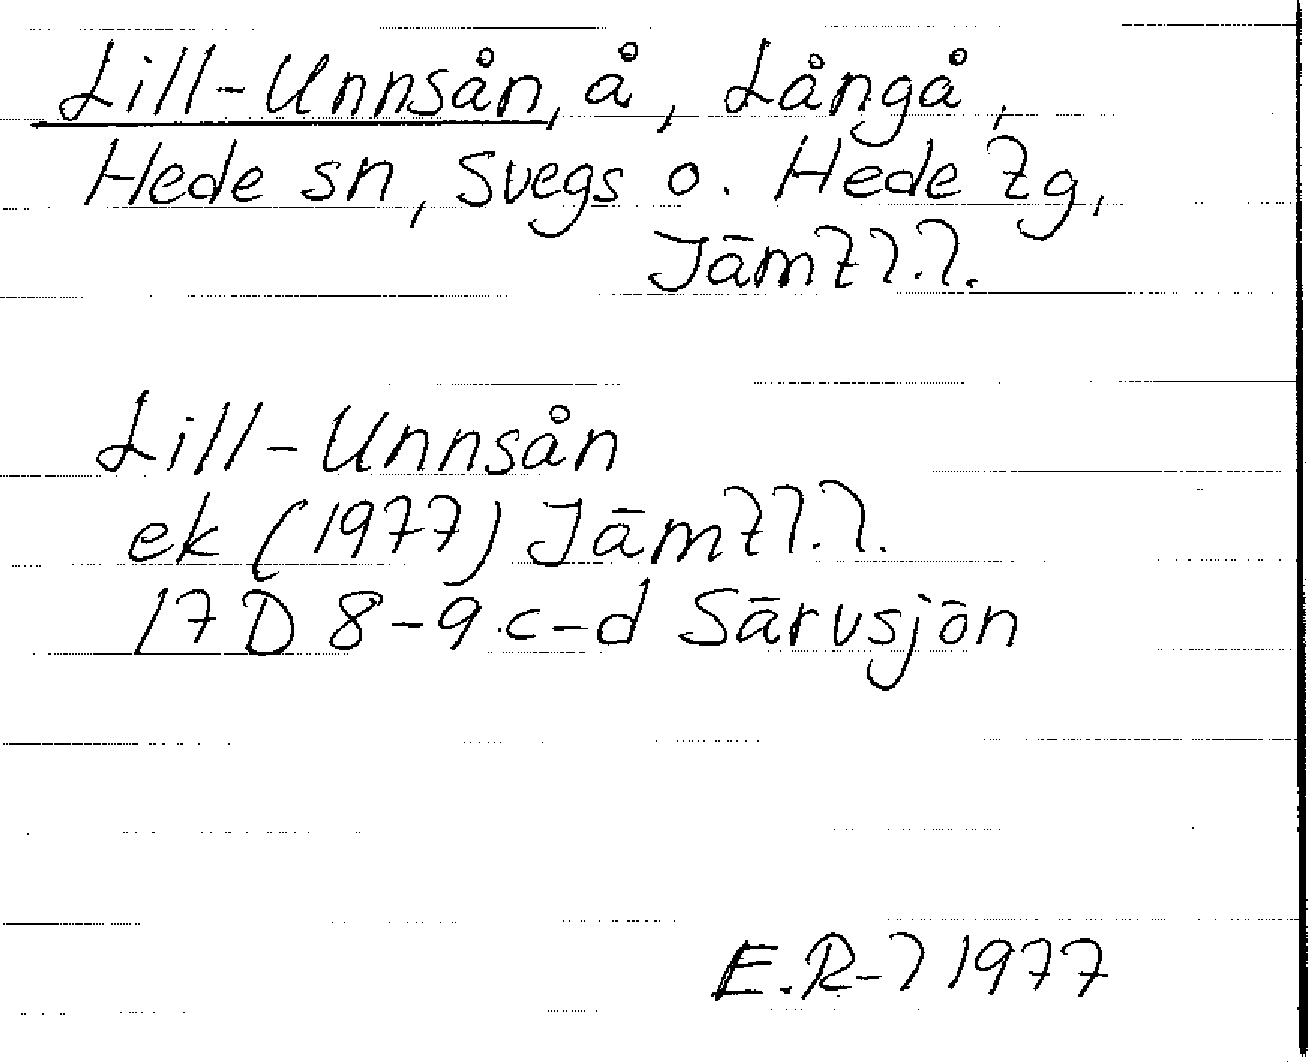 Lill-Unnsån, å, Långå,
Hede sn, Svegs o. Hede tg,
Jämtl.l.
Lill-Unnsån
ek (1977) Jämtl.l.
17D 8-9 c-d Särvsjön
E.R-l 1977